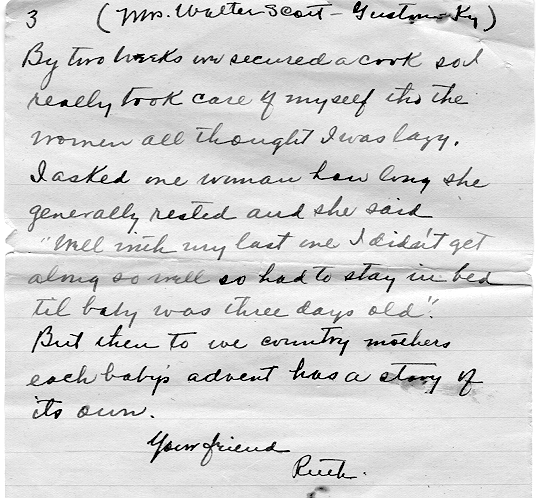 3 (Mrs. Walter Scott - Guston Ky)
By two weeks we secured a cook so I
really took care of myself tho the
women all thought I was lazy.
I asked one woman how long she
generally rested and she said
"Well with my last one I didn't get
along so well so had to stay in bed
til baby was three days old".
But then to we country mothers
each baby's advent has a story of
its own.
Your friend
Ruth.